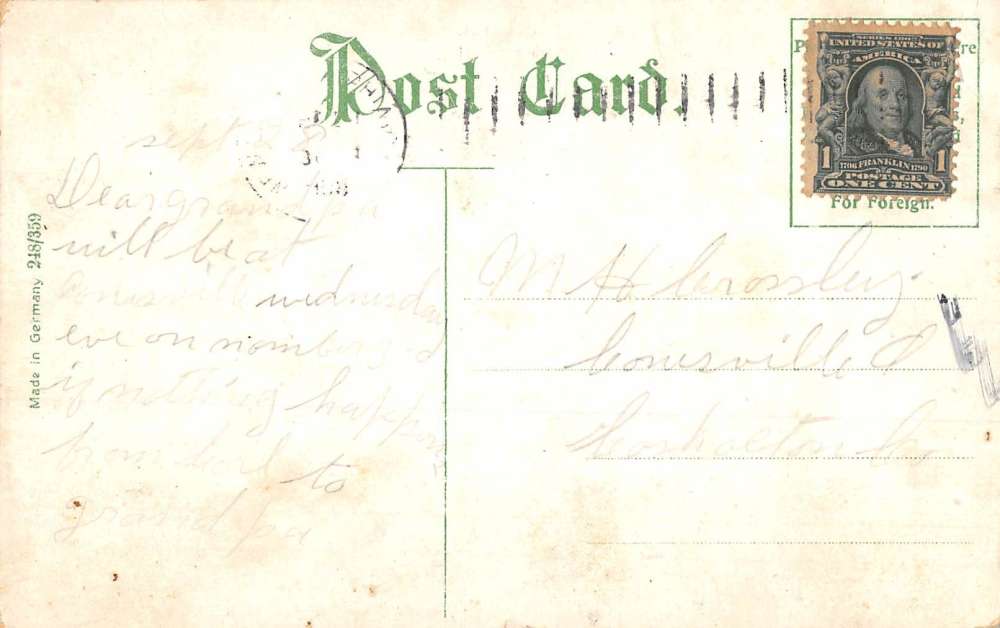 Post Card.
SERIES 1902
UNITED STATES OF
AMERICA
1 1706 FRANKLIN 1790 1
POSTAGE
ONE CENT
For Foreign.
Made in Germany 248/359
sept 28
Dear grand pa
will be at
Conesville wednesday
eve on
if nothing happens
from to
grand pa
M H Crossley
Conesville O
Coshocton Co